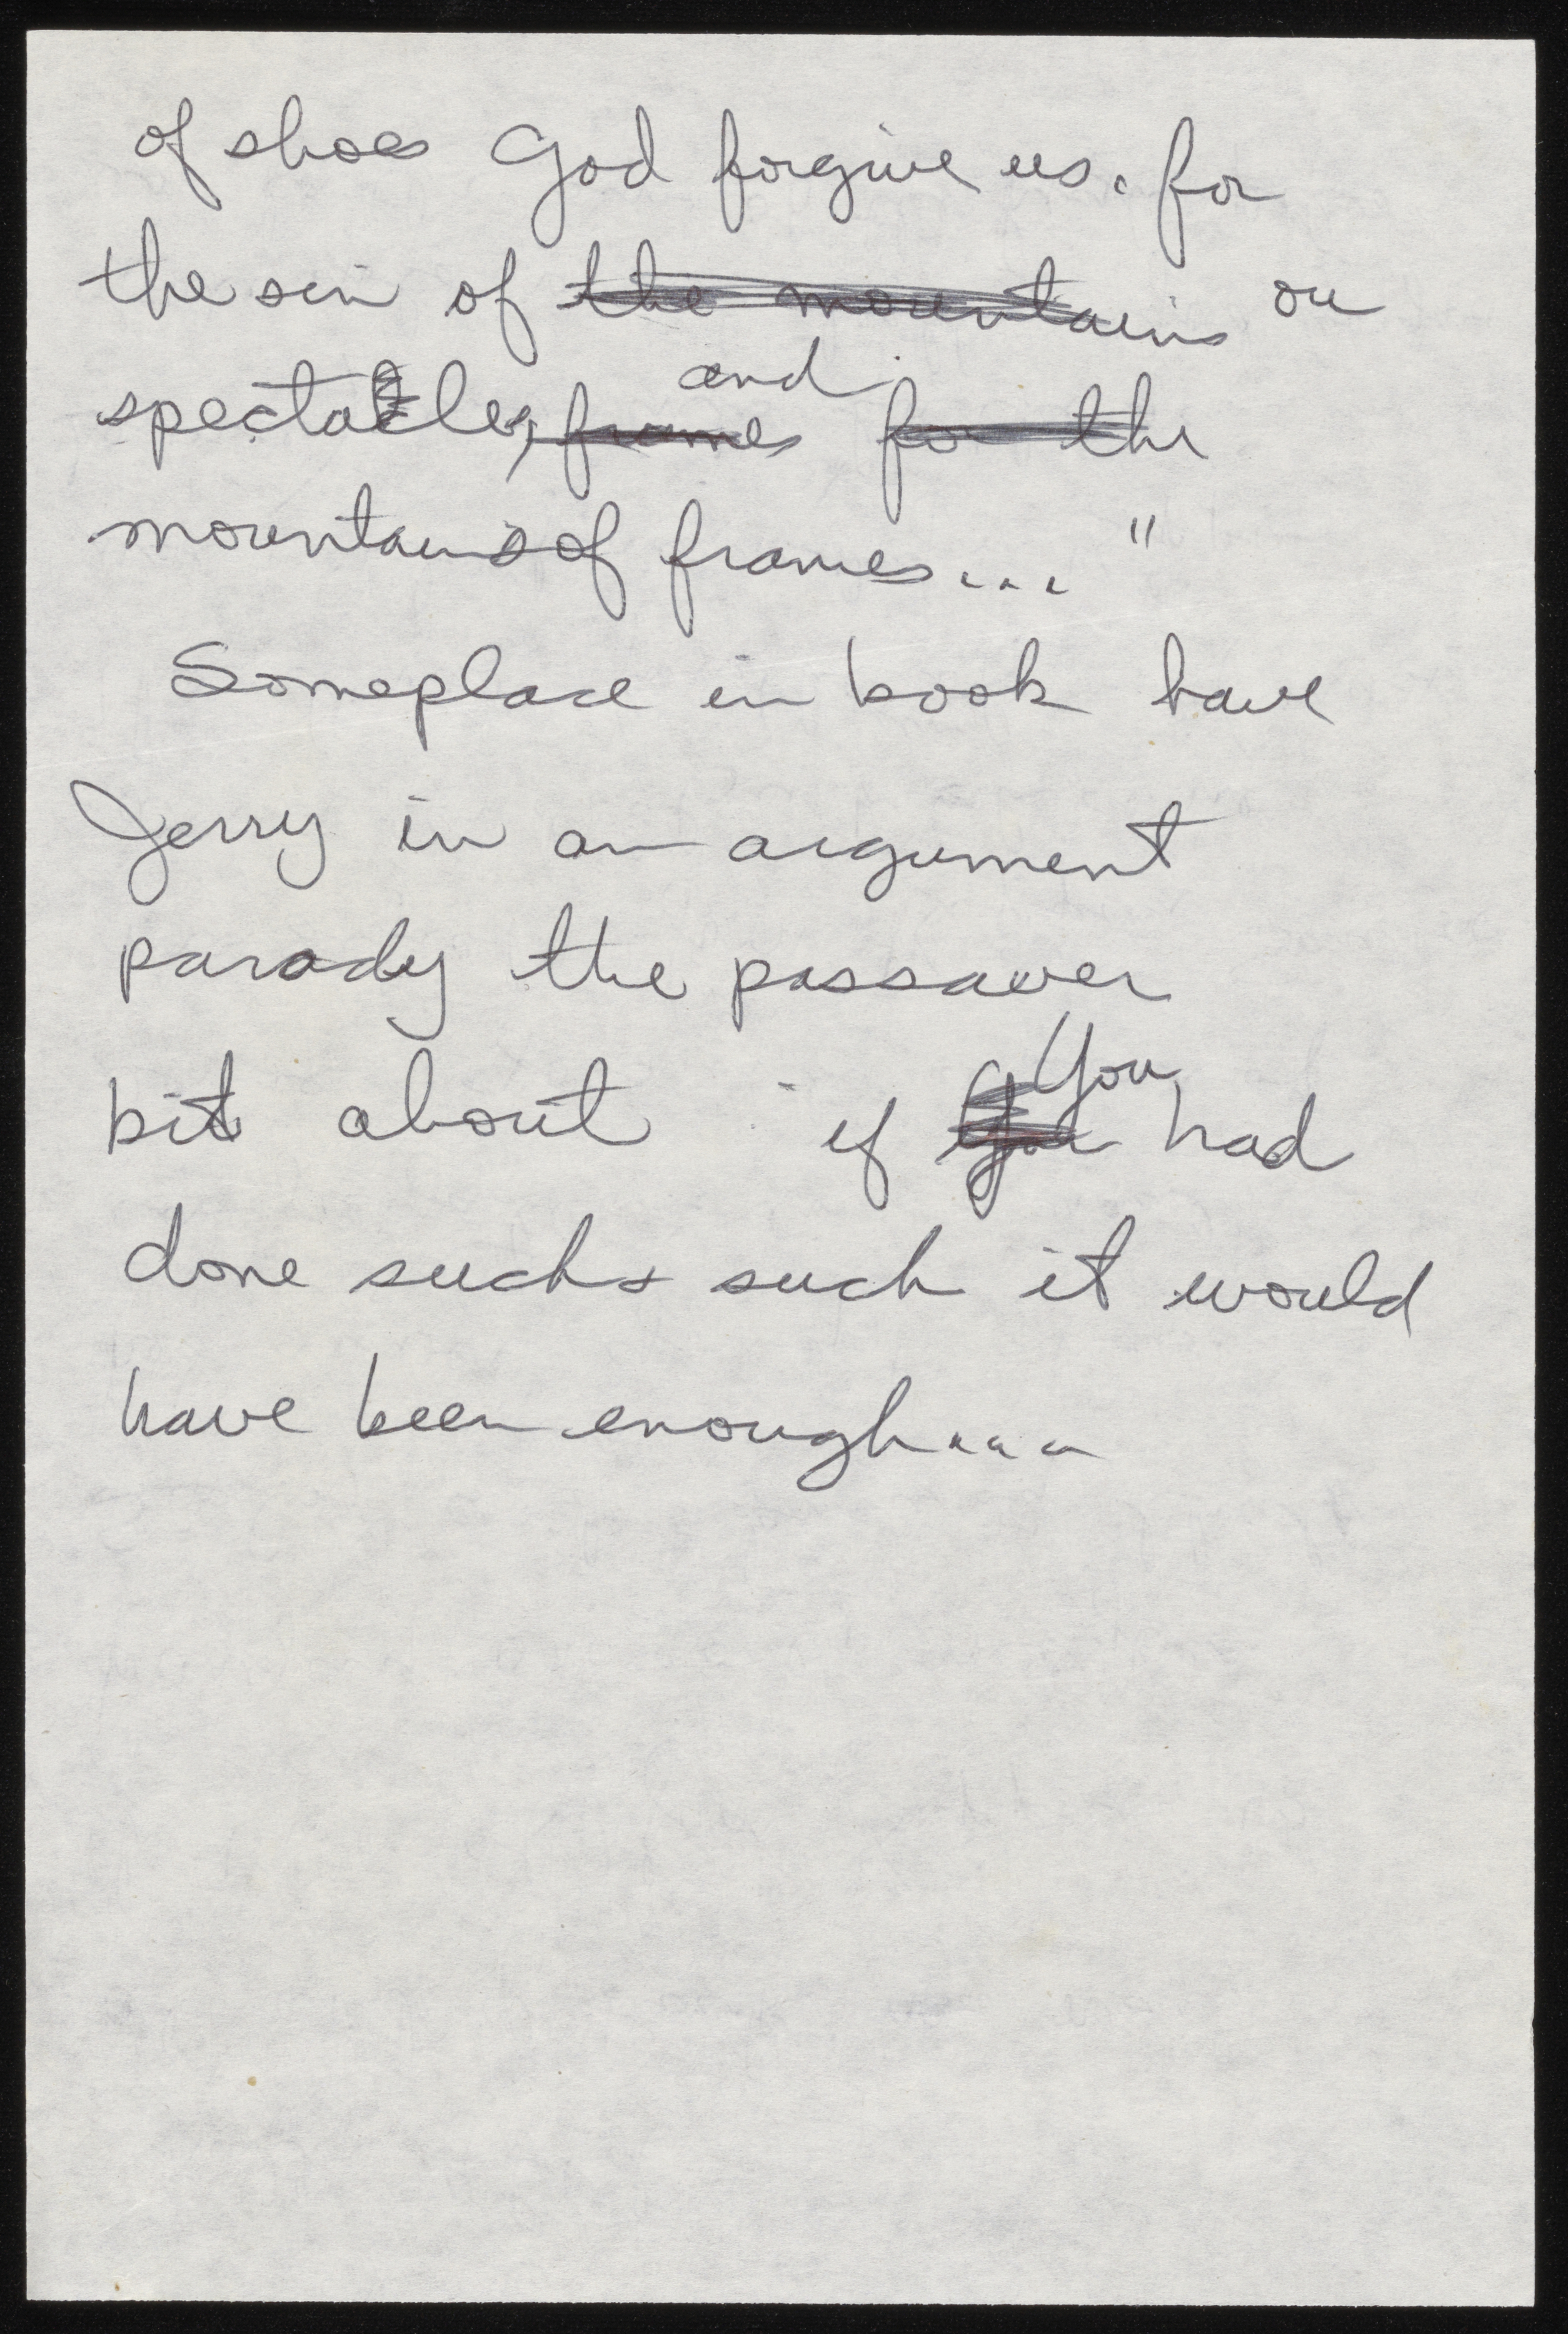 of shoes God forgive us. for
the sin of the mountains our
spectacles, frames and for the
mountains of frames..."
Someplace in book have
Jerry in an argument
parody the passaver
bit about if God You had
done such & such it would
have been enough...